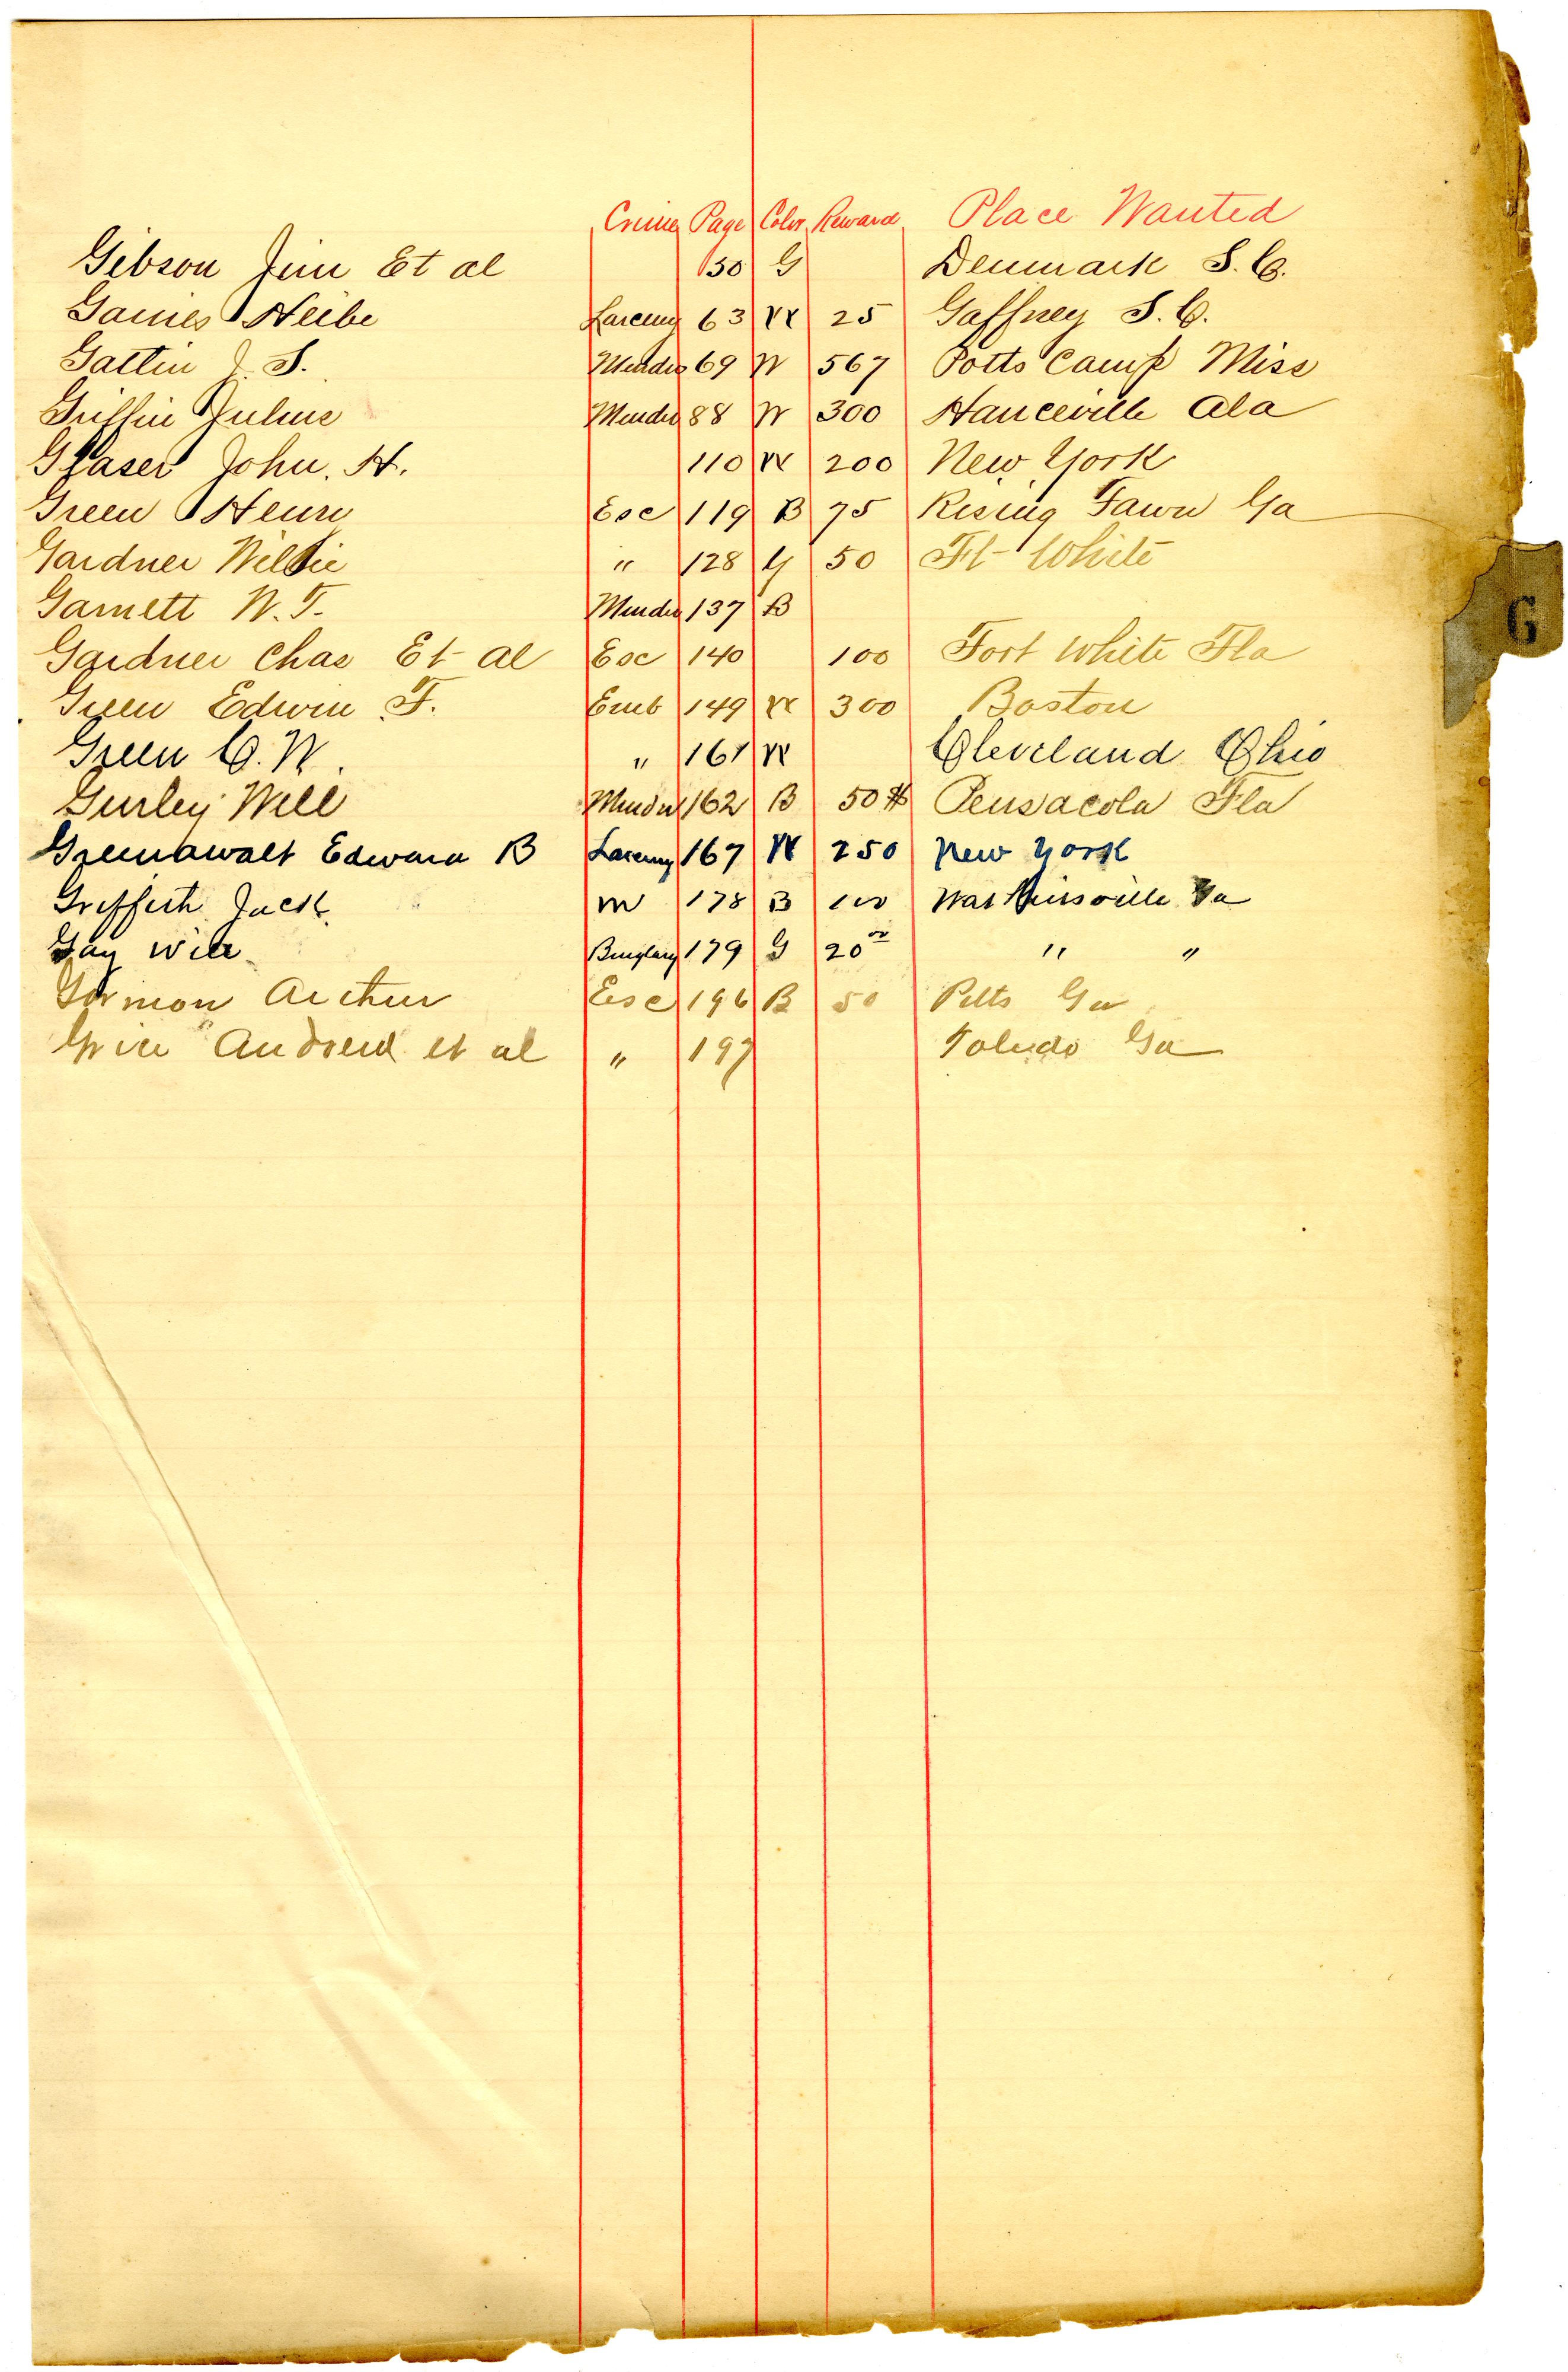 Crime Page Color Reward Place Wanted
Gibson Jim Et al 50 G Denmark S.C.
Gaines Heibe Larceny 63 W 25 Gaffney S.C.
Gattin J. S. Murder 69 W 567 Potts Camp Miss
Griffin Julius Murder 88 W 300 Hanceville Ala
Glaser John. H. 110 W 200 New York
Green Henry Esc 119 B 75 Rising Fawn Ga
Gardner Willie " 128 G 50 Ft White
Garnett W. T. Murder 137 B
Gardner Chas Et al Esc 140 100 Fort White Fla
Green Edwin F. Emb 149 W 300 Boston
Green C. W. " 161 W Cleveland Ohio
Gurley Will Murder 162 B 50 Pensacola Fla
Greenawalt Edward B Larceny 167 W 250 New York
Griffeth Jack M 178 B 100 Watkinsville Ga
Gay Will Burglary 179 G 20 00 " "
Gormon Arthur Esc 196 B 50 Pitts Ga
Andrew et al " 197 Toledo Ga
G